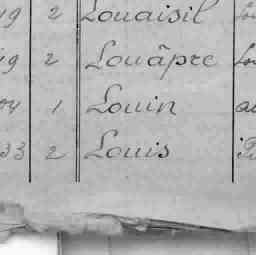 19 2 Louaisil
19 2 Louâpre
04 1 Louin
33 2 Louis